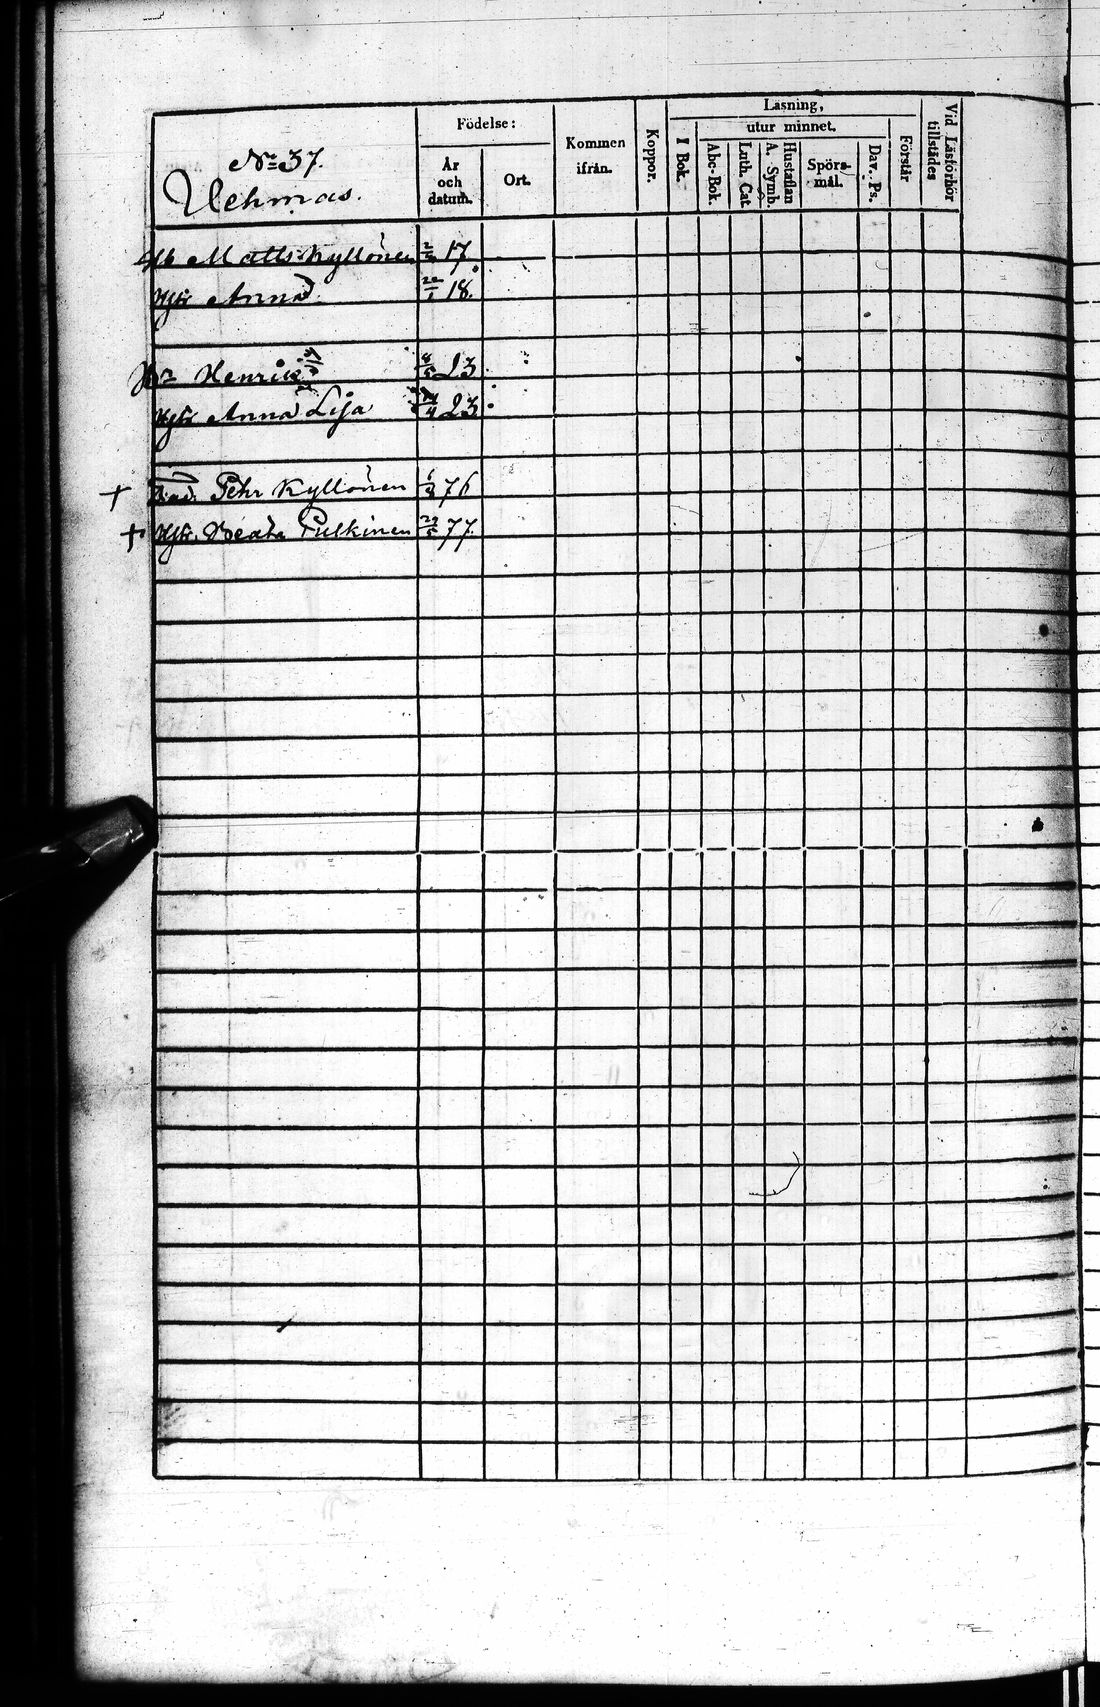 No 37.
Uehmas.
Födelse:
År och datum.
Ort.
Kommen ifrån.
Koppor.
Läsning,
I Bok.
utur minnet.
Abc-Bok.
Luth. Cat.
A. Symb.
Hustaflan
Spörsmål.
Dav. Ps.
Förstår
Vid Läsförhör tillstädes
Matts Kyllönen 17
Hstr Anna 18.
Br Henrik 8/5 23.
Hstr Anna Lisa 23.
+ Pehr Kyllönen 76
+ Hstr. Beata Pulkinen 77.